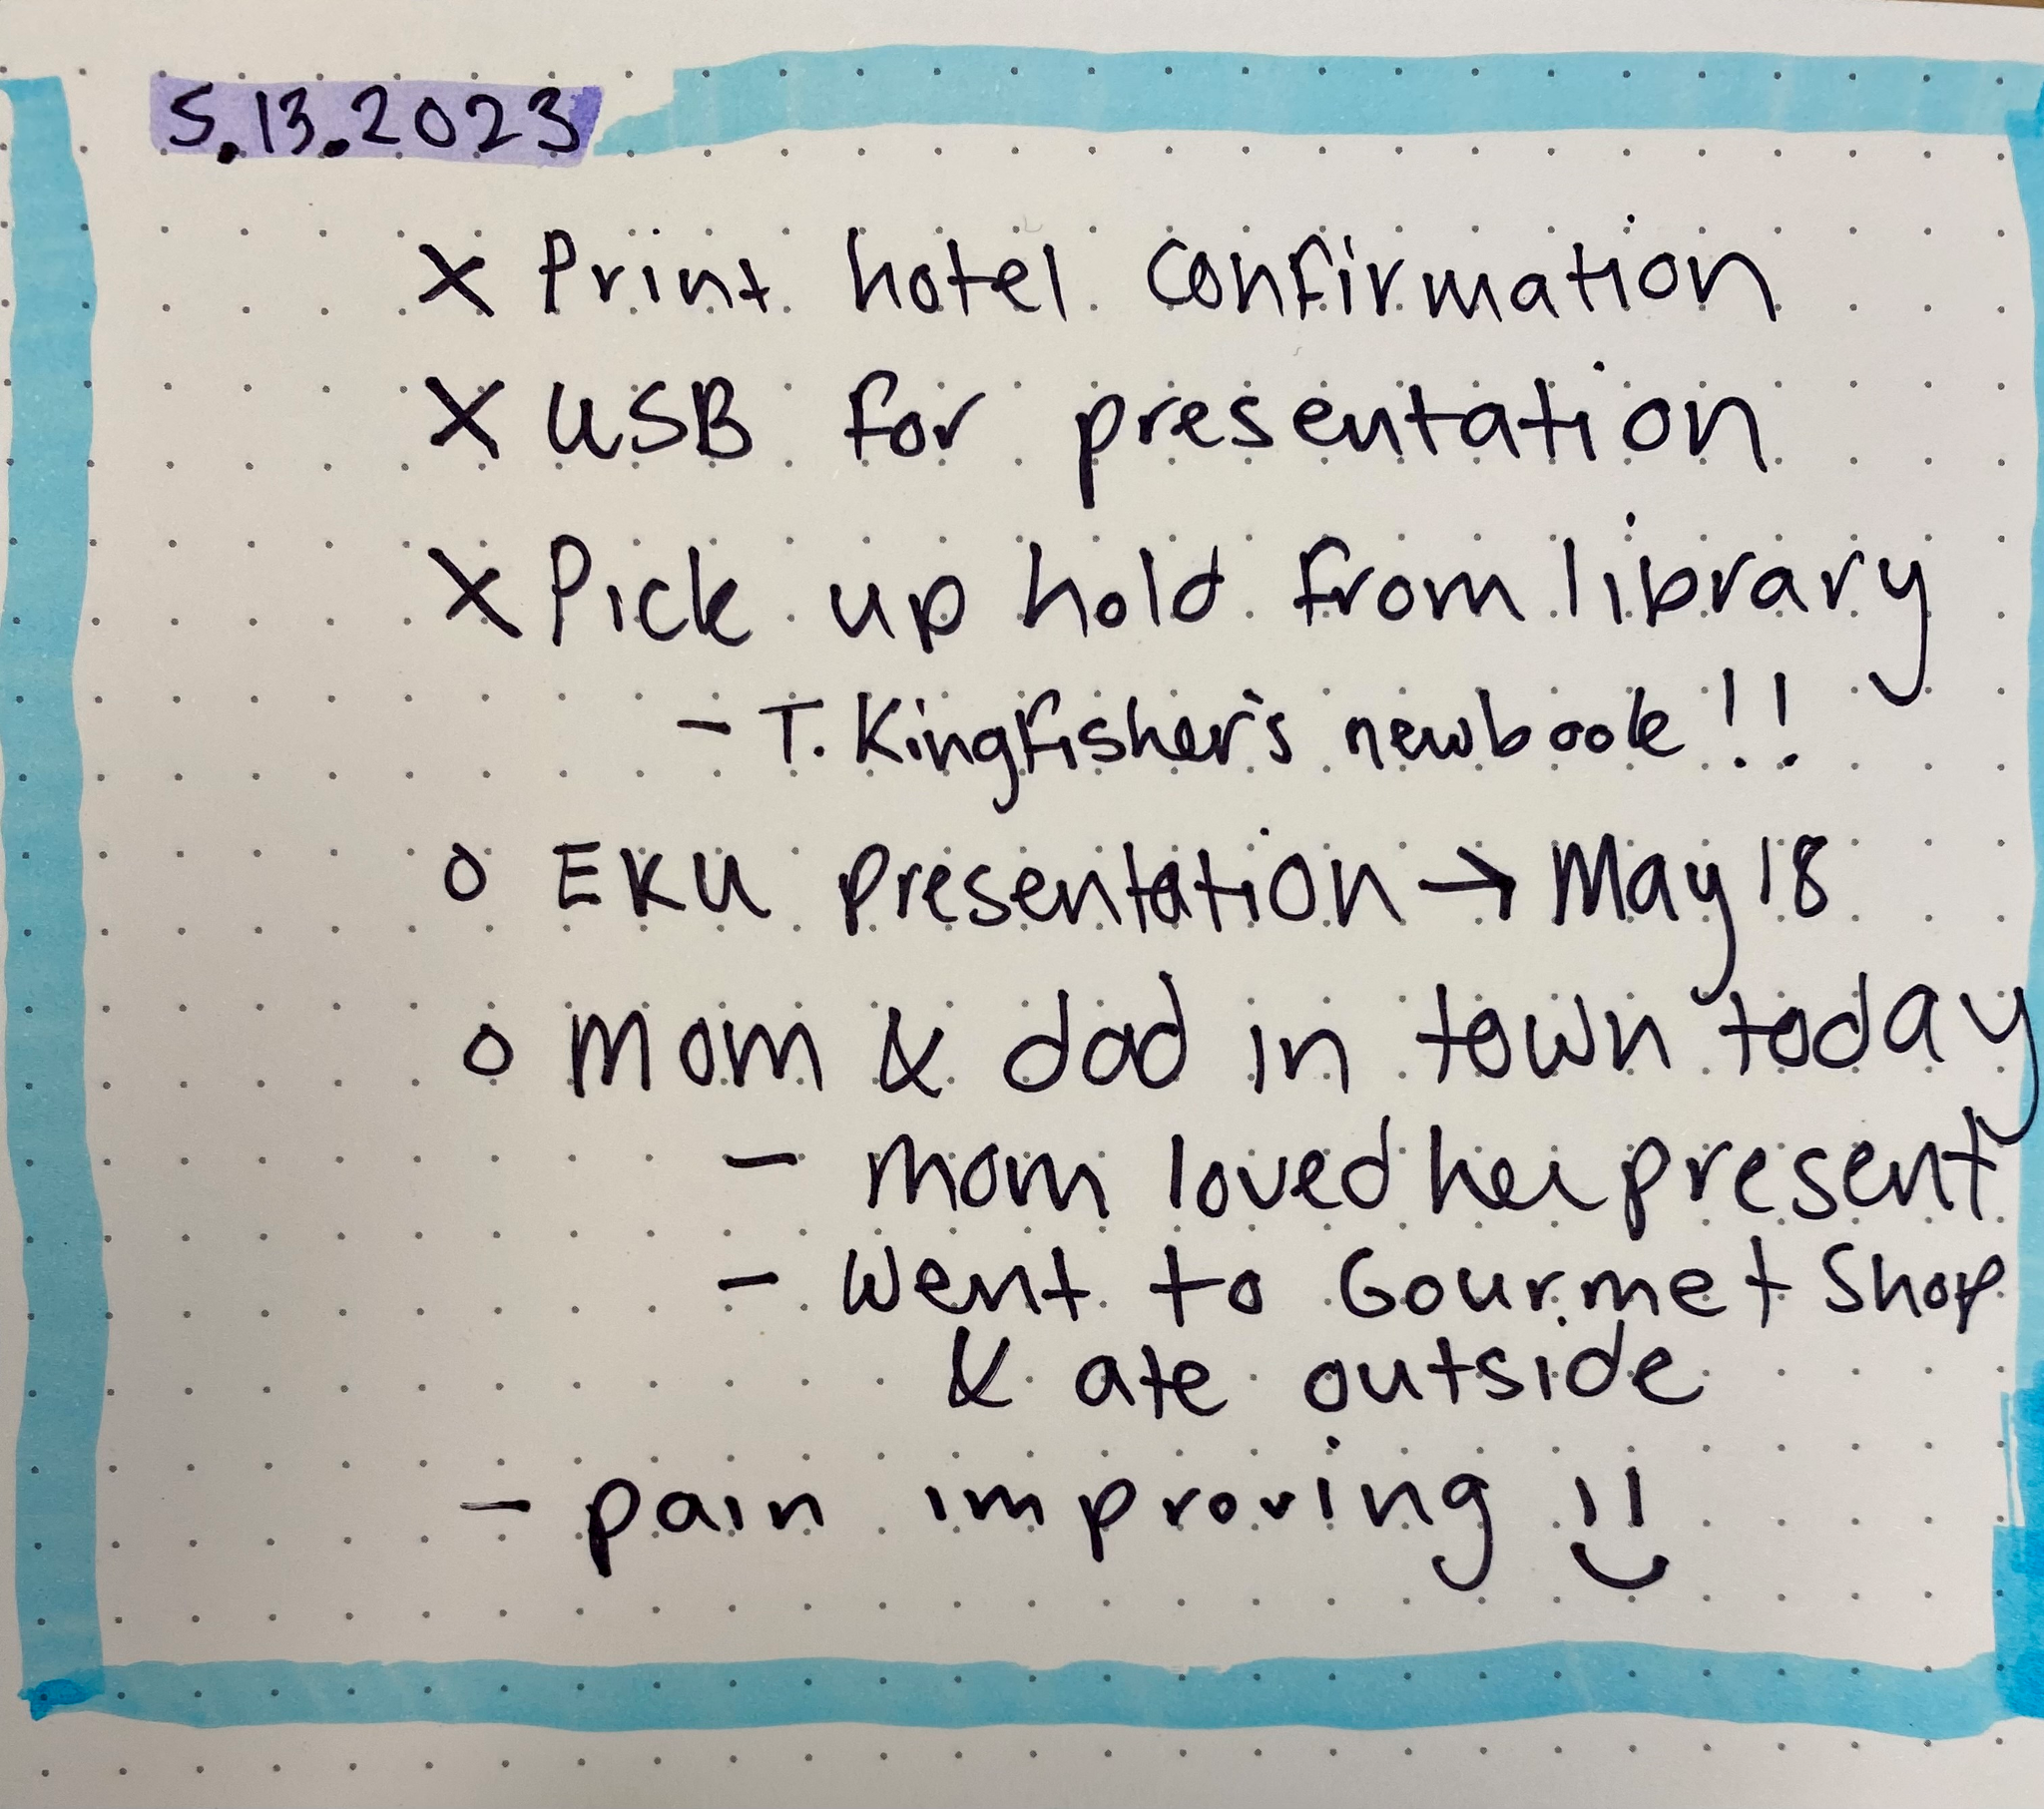 5.13.2023
X Print hotel confirmation
X USB for presentation
X Pick up hold from library
- T. Kingfisher's new book!!
o EKU presentation → May 18
o Mom & dad in town today
- mom loved her present
- Went to Gourmet Shop
& ate outside
- pain improving !!